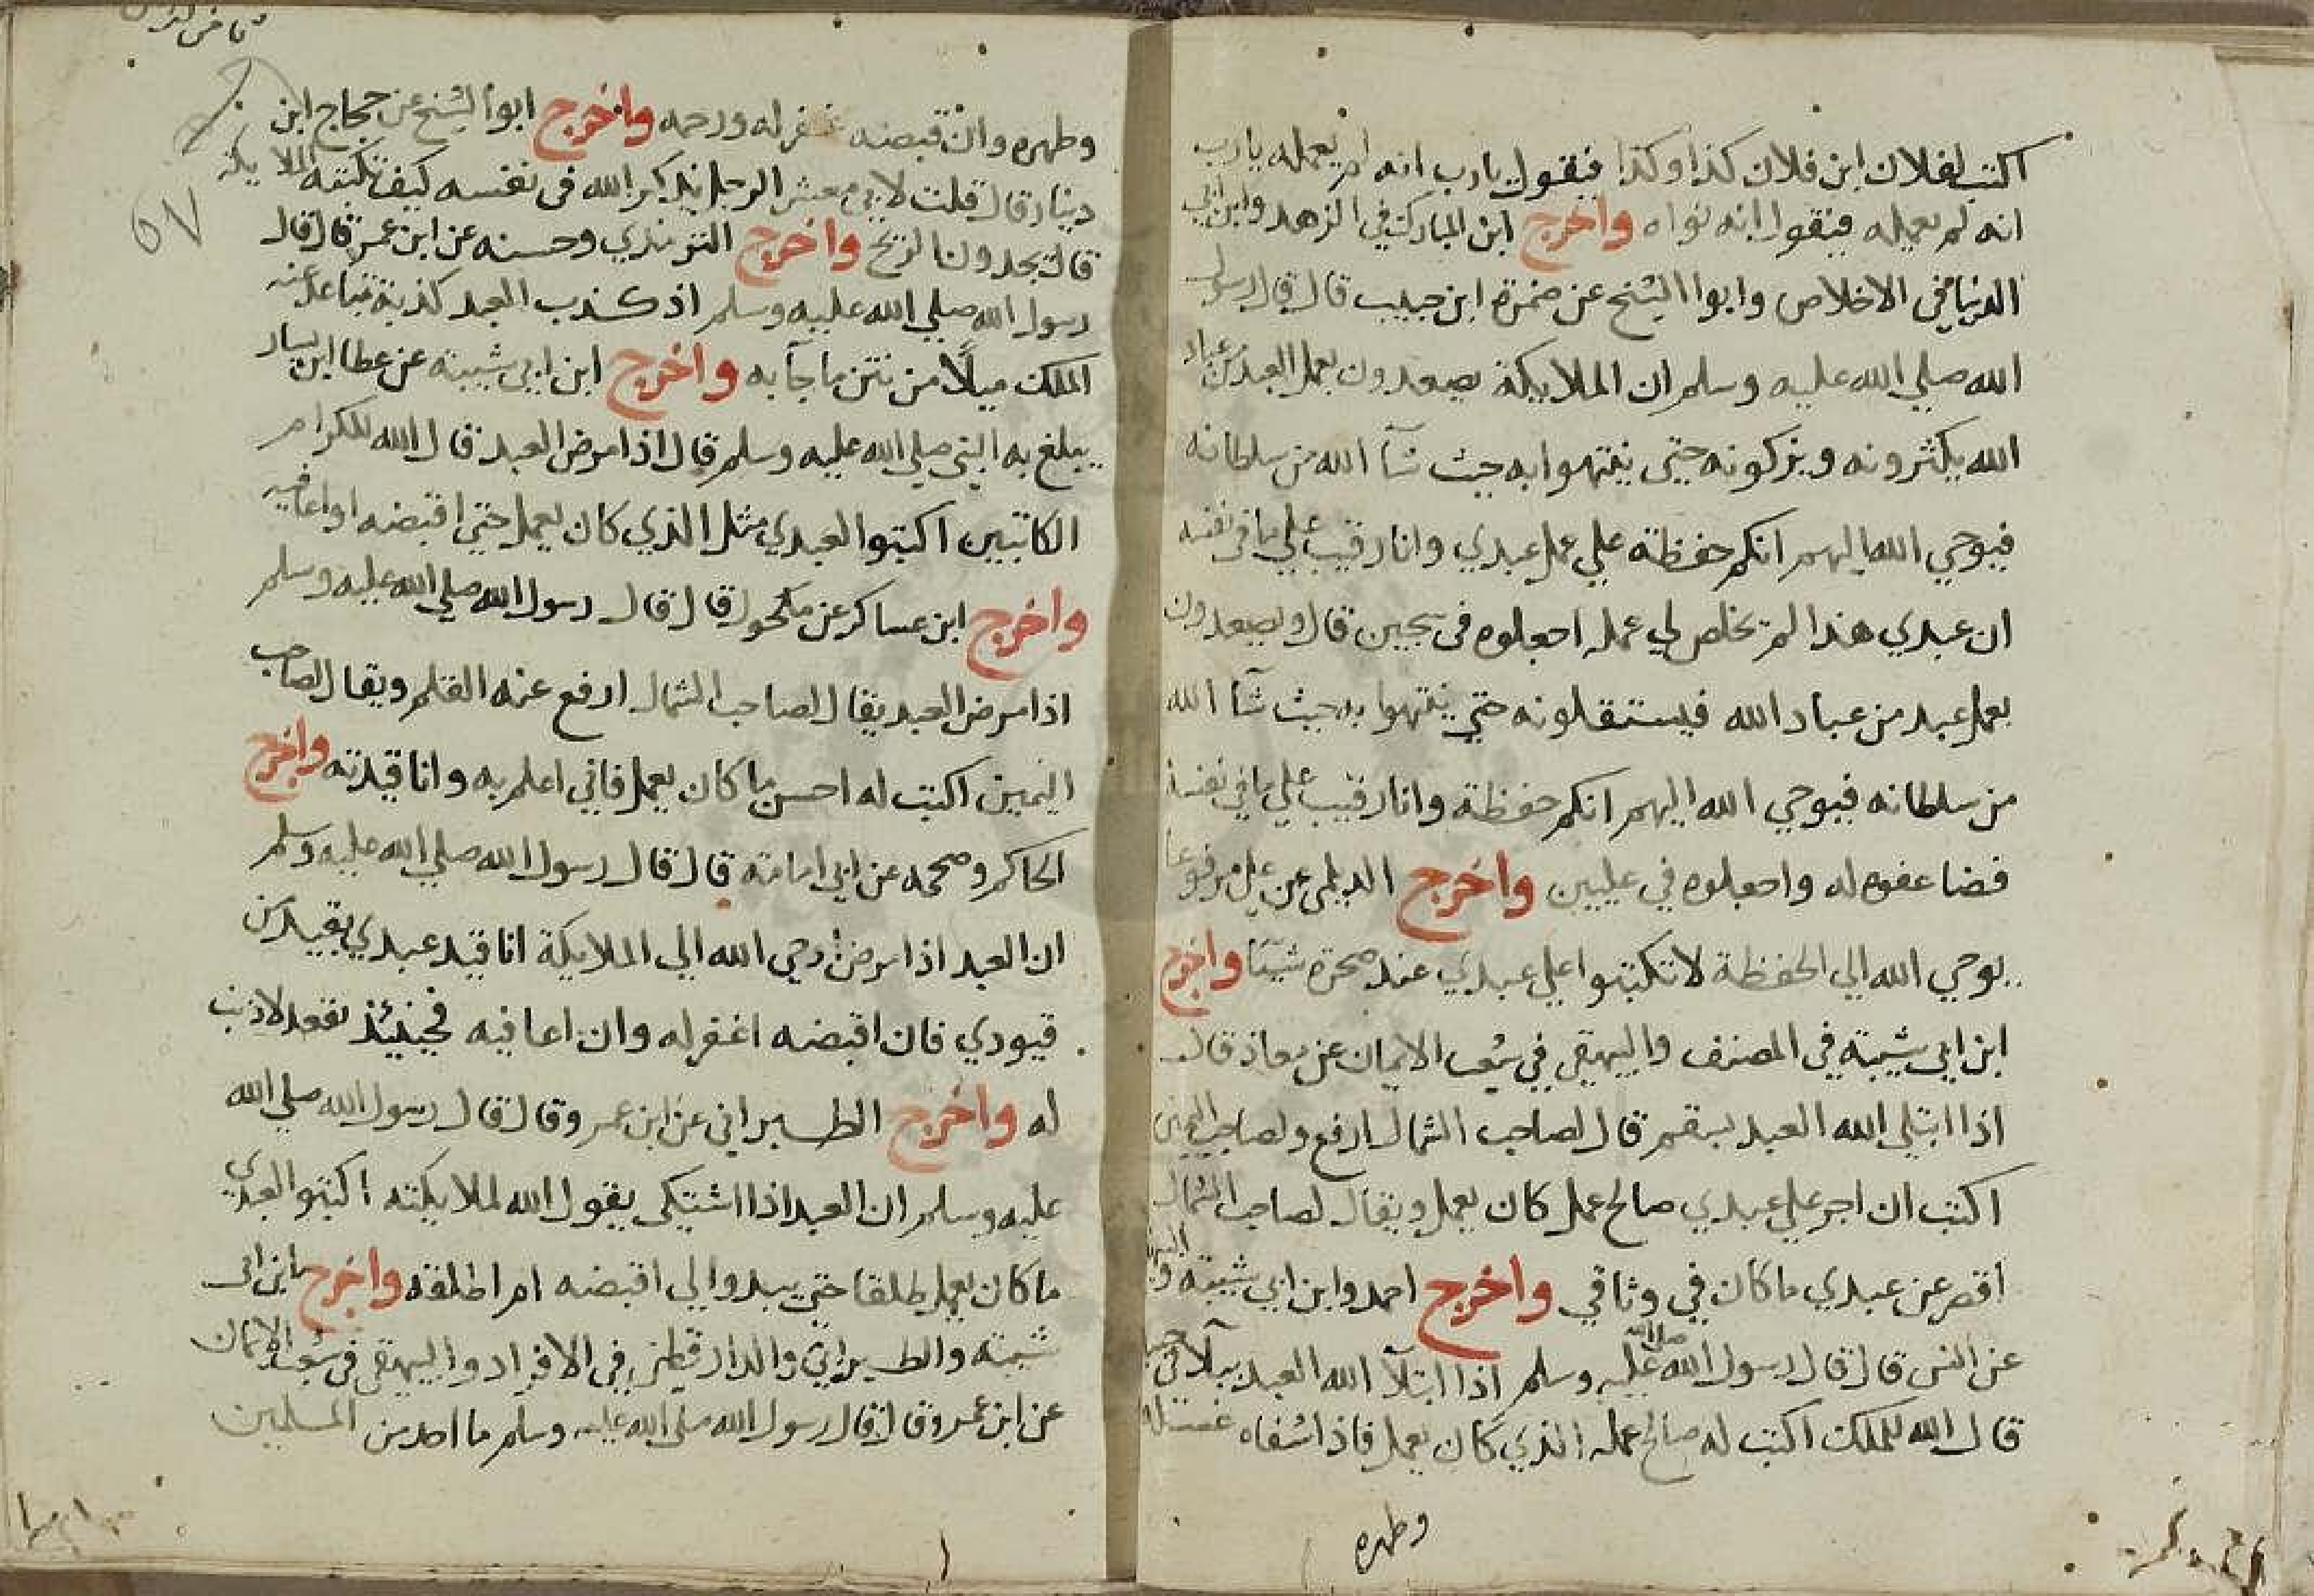 اكتب لفلان ابن فلان كذا وكذا فيقول يارب انه لم يعمله يارب
انه لم يعمله فيقول انه نواه واخرج ابن المبارك في الزهد وابن ابي
الدنيا في الاخلاص وابوا الشيخ عن ضمرة ابن حبيب قال قال رسول
الله صلي الله عليه وسلم ان الملايكة يصعدون بعمل العبد من عباد
الله يكثرونه ويزكونه حتي ينتهوا به حيث شآ الله من سلطانه
فيوحي الله اليهم انكم حفظة علي عمل عبدي وانا رقيب علي ما في نفسه
ان عبدي هذا لم يخلص لي عمله اجعلوه في سجين قال ويصعدون
بعمل عبد من عباد الله فيستقلونه حتي ينتهوا به حيث شآ الله
من سلطانه فيوحي الله اليهم انكم حفظة وانا رقيب علي ما في نفسه
فضاعفوه له واجعلوه في عليين واخرج الديلمي عن علي مرفوعا
يوحي الله الي الحفظة لا تكتبوا علي عبدي عند ضجره شيئا واخرج
ابن ابي شيبة في المصنف والبيهقي في شعب الايمان عن معاذ قال
اذا ابتلي الله العبد بسقم قال لصاحب الشمال ارفع ولصاحب اليمين
اكتب ان اجر علي عبدي صالح عمل كان يعمل ويقال لصاحب الشمال
أقصر عن عبدي ما كان في وثاقي واخرج احمد وابن ابي شيبة
عن انس قال قال رسول الله صلي الله عليه وسلم اذا ابتلآ الله العبد ببلآ في
قال الله للملك اكتب له صالح عمله الذي كان يعمل فاذا شفاه غسله
وطهره
وطهره وان قبضه غفر له ورحمه واخرج ابوا الشيخ عن حجاج ابن
دينار قال قلت لابي معشر الرجل يذكر الله في نفسه كيف تكتبه الملايكة
قال يجدون الريح واخرج الترمذي وحسنه عن ابن عمر قال قال
رسول الله صلي الله عليه وسلم اذ كذب العبد كذبة تباعد عنه
الملك ميلًا من نتن ما جآ به واخرج ابن ابي شيبة عن عطا ابن يسار
يبلغ به النبي صلي الله عليه وسلم قال اذا مرض العبد قال الله للكرام
الكاتبين اكتبوا لعبدي مثل الذي كان يعمل حتي اقبضه او اعافيه
واخرج ابن عساكر عن مكحول قال قال رسول الله صلي الله عليه وسلم
اذا مرض العبد يقال لصاحب الشمال ارفع عنه القلم ويقال لصاحب
اليمين اكتب له احسن ما كان يعمل فاني اعلم به وانا قيدته واخرج
الحاكم وصححه عن ابي امامة قال قال رسول الله صلي الله عليه وسلم
ان العبد اذا مرض اوحي الله الي الملايكة انا قيد عبدي بقيد من
قيودي فان اقبضه اغفر له وان اعافيه فحينيئذ يقعد لا ذنب
له واخرج الطبراني عن ابن عمرو قال قال رسول الله صلي الله
عليه وسلم ان العبد اذا اشتكي يقول الله لملايكته اكتبوا لعبدي
ما كان يعمل طلقا حتي يبدوا لي اقبضه ام اطلقه واخرج ابن ابي
شيبة والطبراني والدارقطني في الافراد والبيهقي في شعب الايمان
عن ابن عمرو قال قال رسول الله صلي الله عليه وسلم ما احد من المسلمين